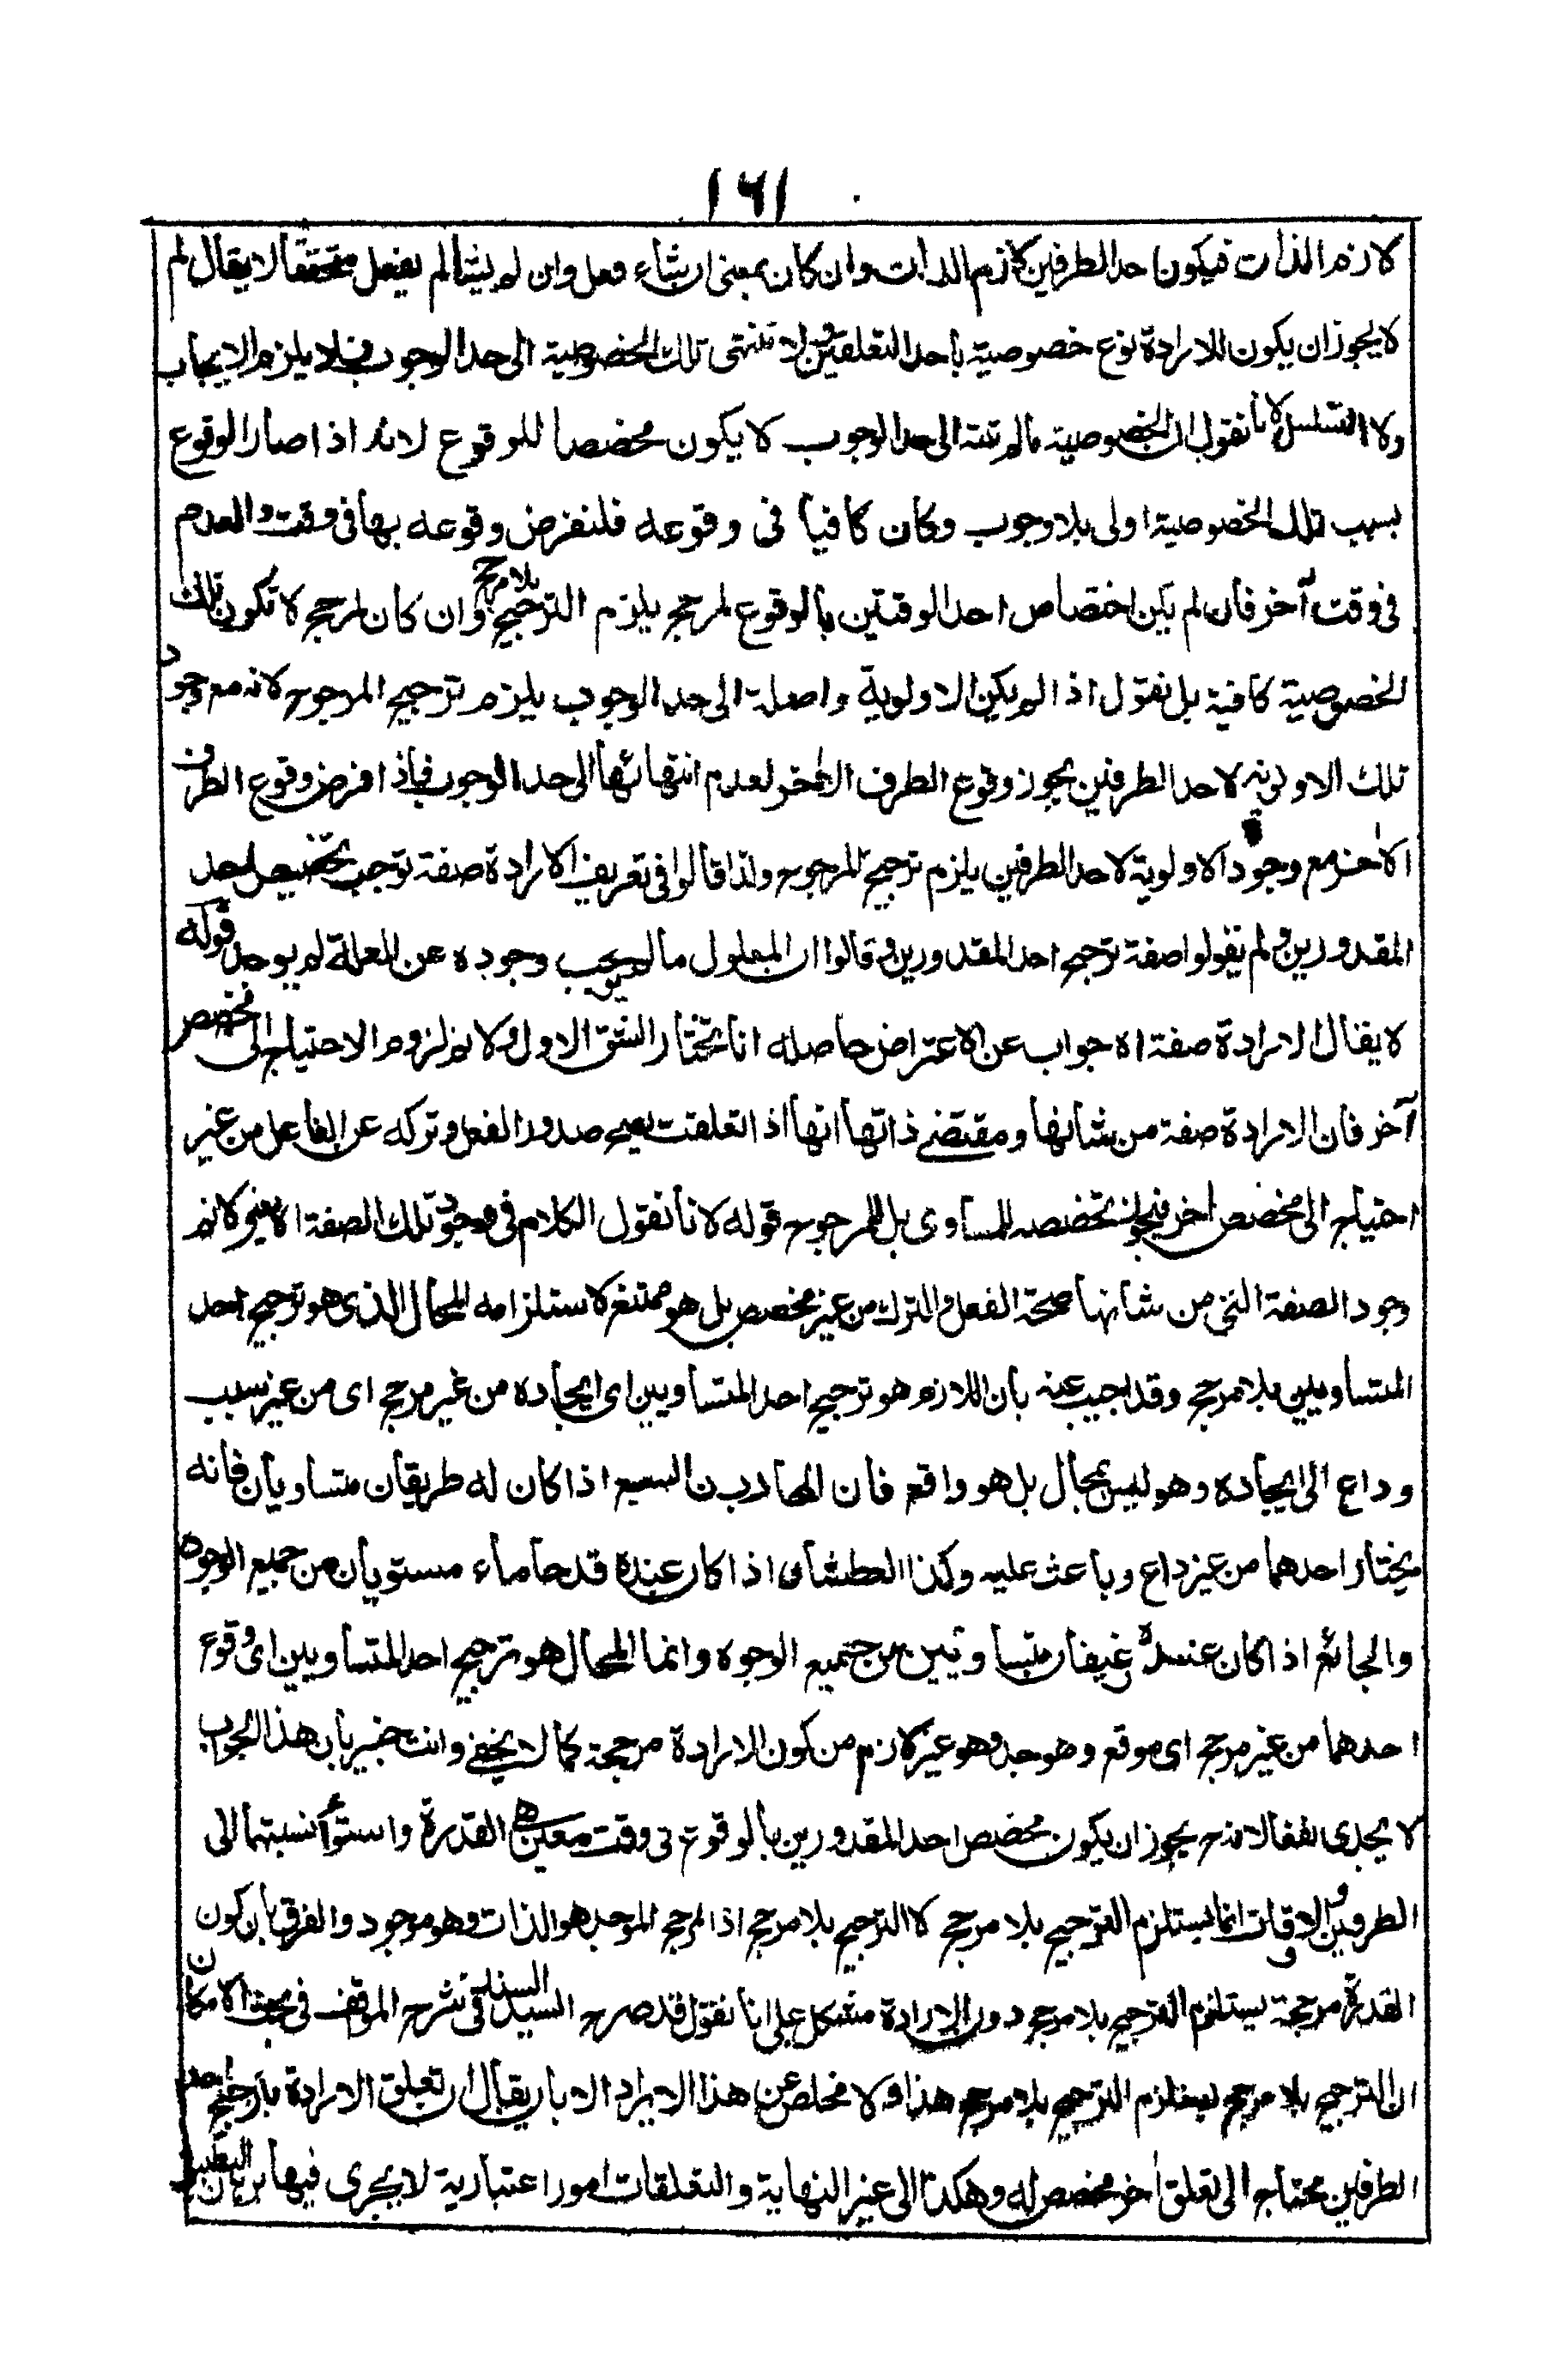 ١٦١
لازم الذات فيكون احد الطرفين لازم الذات وان كان بمعنى ان شاء فعل وان لم يشا لم يفعل متحققا لا يقال لم
لا يجوز ان يكون للارادة نوع خصوصية باحد التعلقين ولا تنتهى تلك الخصوصية الى حد الوجوب فلا يلزم الايجاب
ولا التسلسل لانا نقول ان الخصوصية مالم تنته الى حد الوجوب لا يكون مخصصا للوقوع لانه اذا صار الوقوع
بسبب تلك الخصوصية اولى بلا وجوب وكان كافيا فى وقوعه فلنفرض وقوعه بها فى وقت والعدم
فى وقت آخر فان لم يكن اختصاص احد الوقتين بالوقوع لمرجح يلزم الترجيح بلا مرجح وان كان لمرجح لا تكون تلك
الخصوصية كافية بل نقول اذا لم يكن الاولوية واصلة الى حد الوجوب يلزم ترجيح المرجوح لانه مع وجود
تلك الاولوية لاحد الطرفين يجوز وقوع الطرف الاخر لعدم انتهائها الى حد الوجوب فاذا فرض وقوع الطرف
الاخر مع وجود الاولوية لاحد الطرفين يلزم ترجيح المرجوح ولذا قالوا فى تعريف الارادة صفة توجب تخصيص احد
المقدورين ولم يقولوا صفة ترجح احد المقدورين وقالوا ان المعلول مالم يجب وجوده عن العلة لم يوجد قوله
لا يقال الارادة صفة اه جواب عن الاعتراض حاصله انا نختار الشق الاول ولا نم لزوم الاحتياج الى مخصص
آخر فان الارادة صفة من شانها ومقتضى ذاتها انها اذا تعلقت يصح صدور الفعل وتركه عن الفاعل من غير
احتياج الى مخصص اخر فيجوز تخصصه للمساوى بل للمرجوح قوله لانا نقول الكلام فى وجود تلك الصفة اه يعنى لا نم
وجود الصفة التى من شانها صحة الفعل والترك من غير مخصص بل هو ممتنع لاستلزامه المحال الذى هو ترجيح احد
المتساويين بلا مرجح وقد اجيب عنه بان اللازم هو ترجيح احد المتساويين اى ايجاده من غير مرجح اى من غير سبب
وداع الى ايجاده وهو ليس بمحال بل هو واقع فان الهارب من السبع اذا كان له طريقان متساويان فانه
يختار احدهما من غير داع وباعث عليه وكذا العطشان اذا كان عنده قدحا ماء مستويان من جميع الوجوه
والجائع اذا كان عنده رغيفان متساويين من جميع الوجوه وانما المحال هو ترجيح احد المتساويين اى وقوع
احدهما من غير مرجح اى موقع وهو جد وهو غير لازم من كون الارادة مرجحة كما لا يخفى وانت خبير بان هذا الجواب
لا يجدى نفعا لانه ح يجوز ان يكون مخصص احد المقدورين بالوقوع فى وقت معين هى القدرة واستواء نسبتهما الى
الطرفين والاوقات انما يستلزم الترجيح بلا مرجح لا الترجيح بلا مرجح اذ المرجح الموجد هو الذات وهو موجود والفرق بان كون
القدرة مرجحة يستلزم الترجيح بلا مرجح دون الارادة مشكل على انا نقول قد صرح السيد السند فى شرح المواقف فى بحث الامكان
ان الترجيح بلا مرجح يستلزم الترجيح بلا مرجح هذا ولا مخلص عن هذا الايراد الا بان يقال ان تعلق الارادة بترجيح احد
الطرفين محتاج الى تعلق اخر مخصص له وهكذا الى غير النهاية والتعلقات امور اعتبارية لا يجرى فيها برهان التطبيق